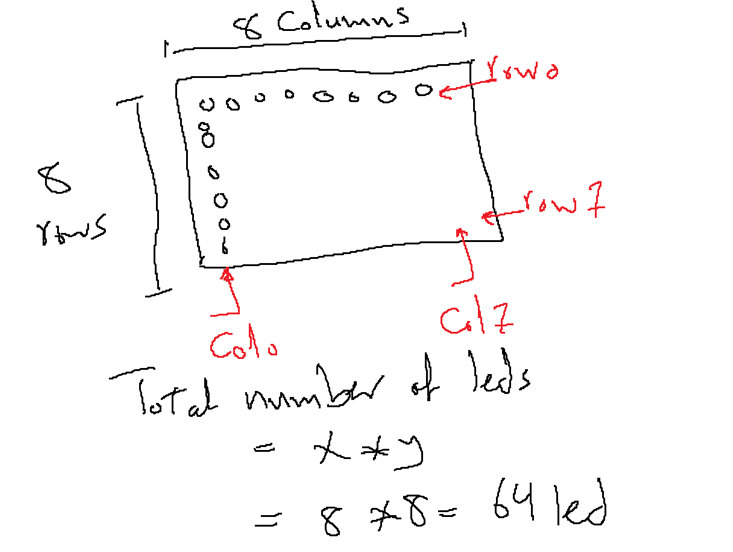 8 Columns
row0
8
rows
row 7
Col 7
Col0
Total number of leds
= x * y
= 8 * 8 = 64 led